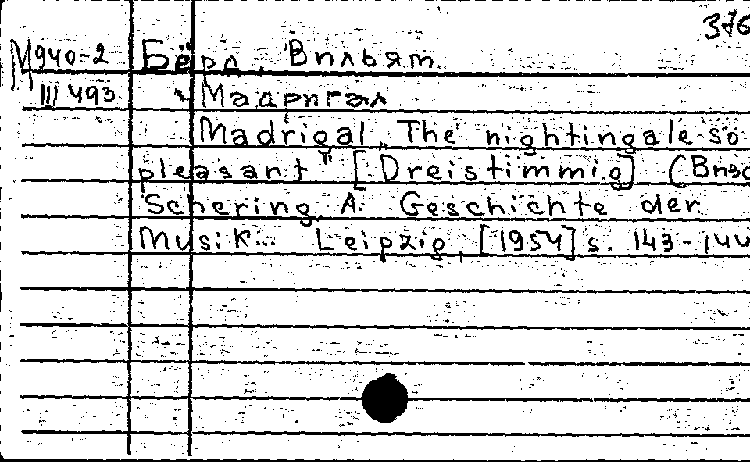 376
М940-2 Бёрд, Вильям.
III 493 Мадригал
Madrigal „The nightingale so
pleasant" [Dreistimmig] (В кн:
Schering, A. Geschichte der
Musik... Leipzig, [1954] s. 143-144